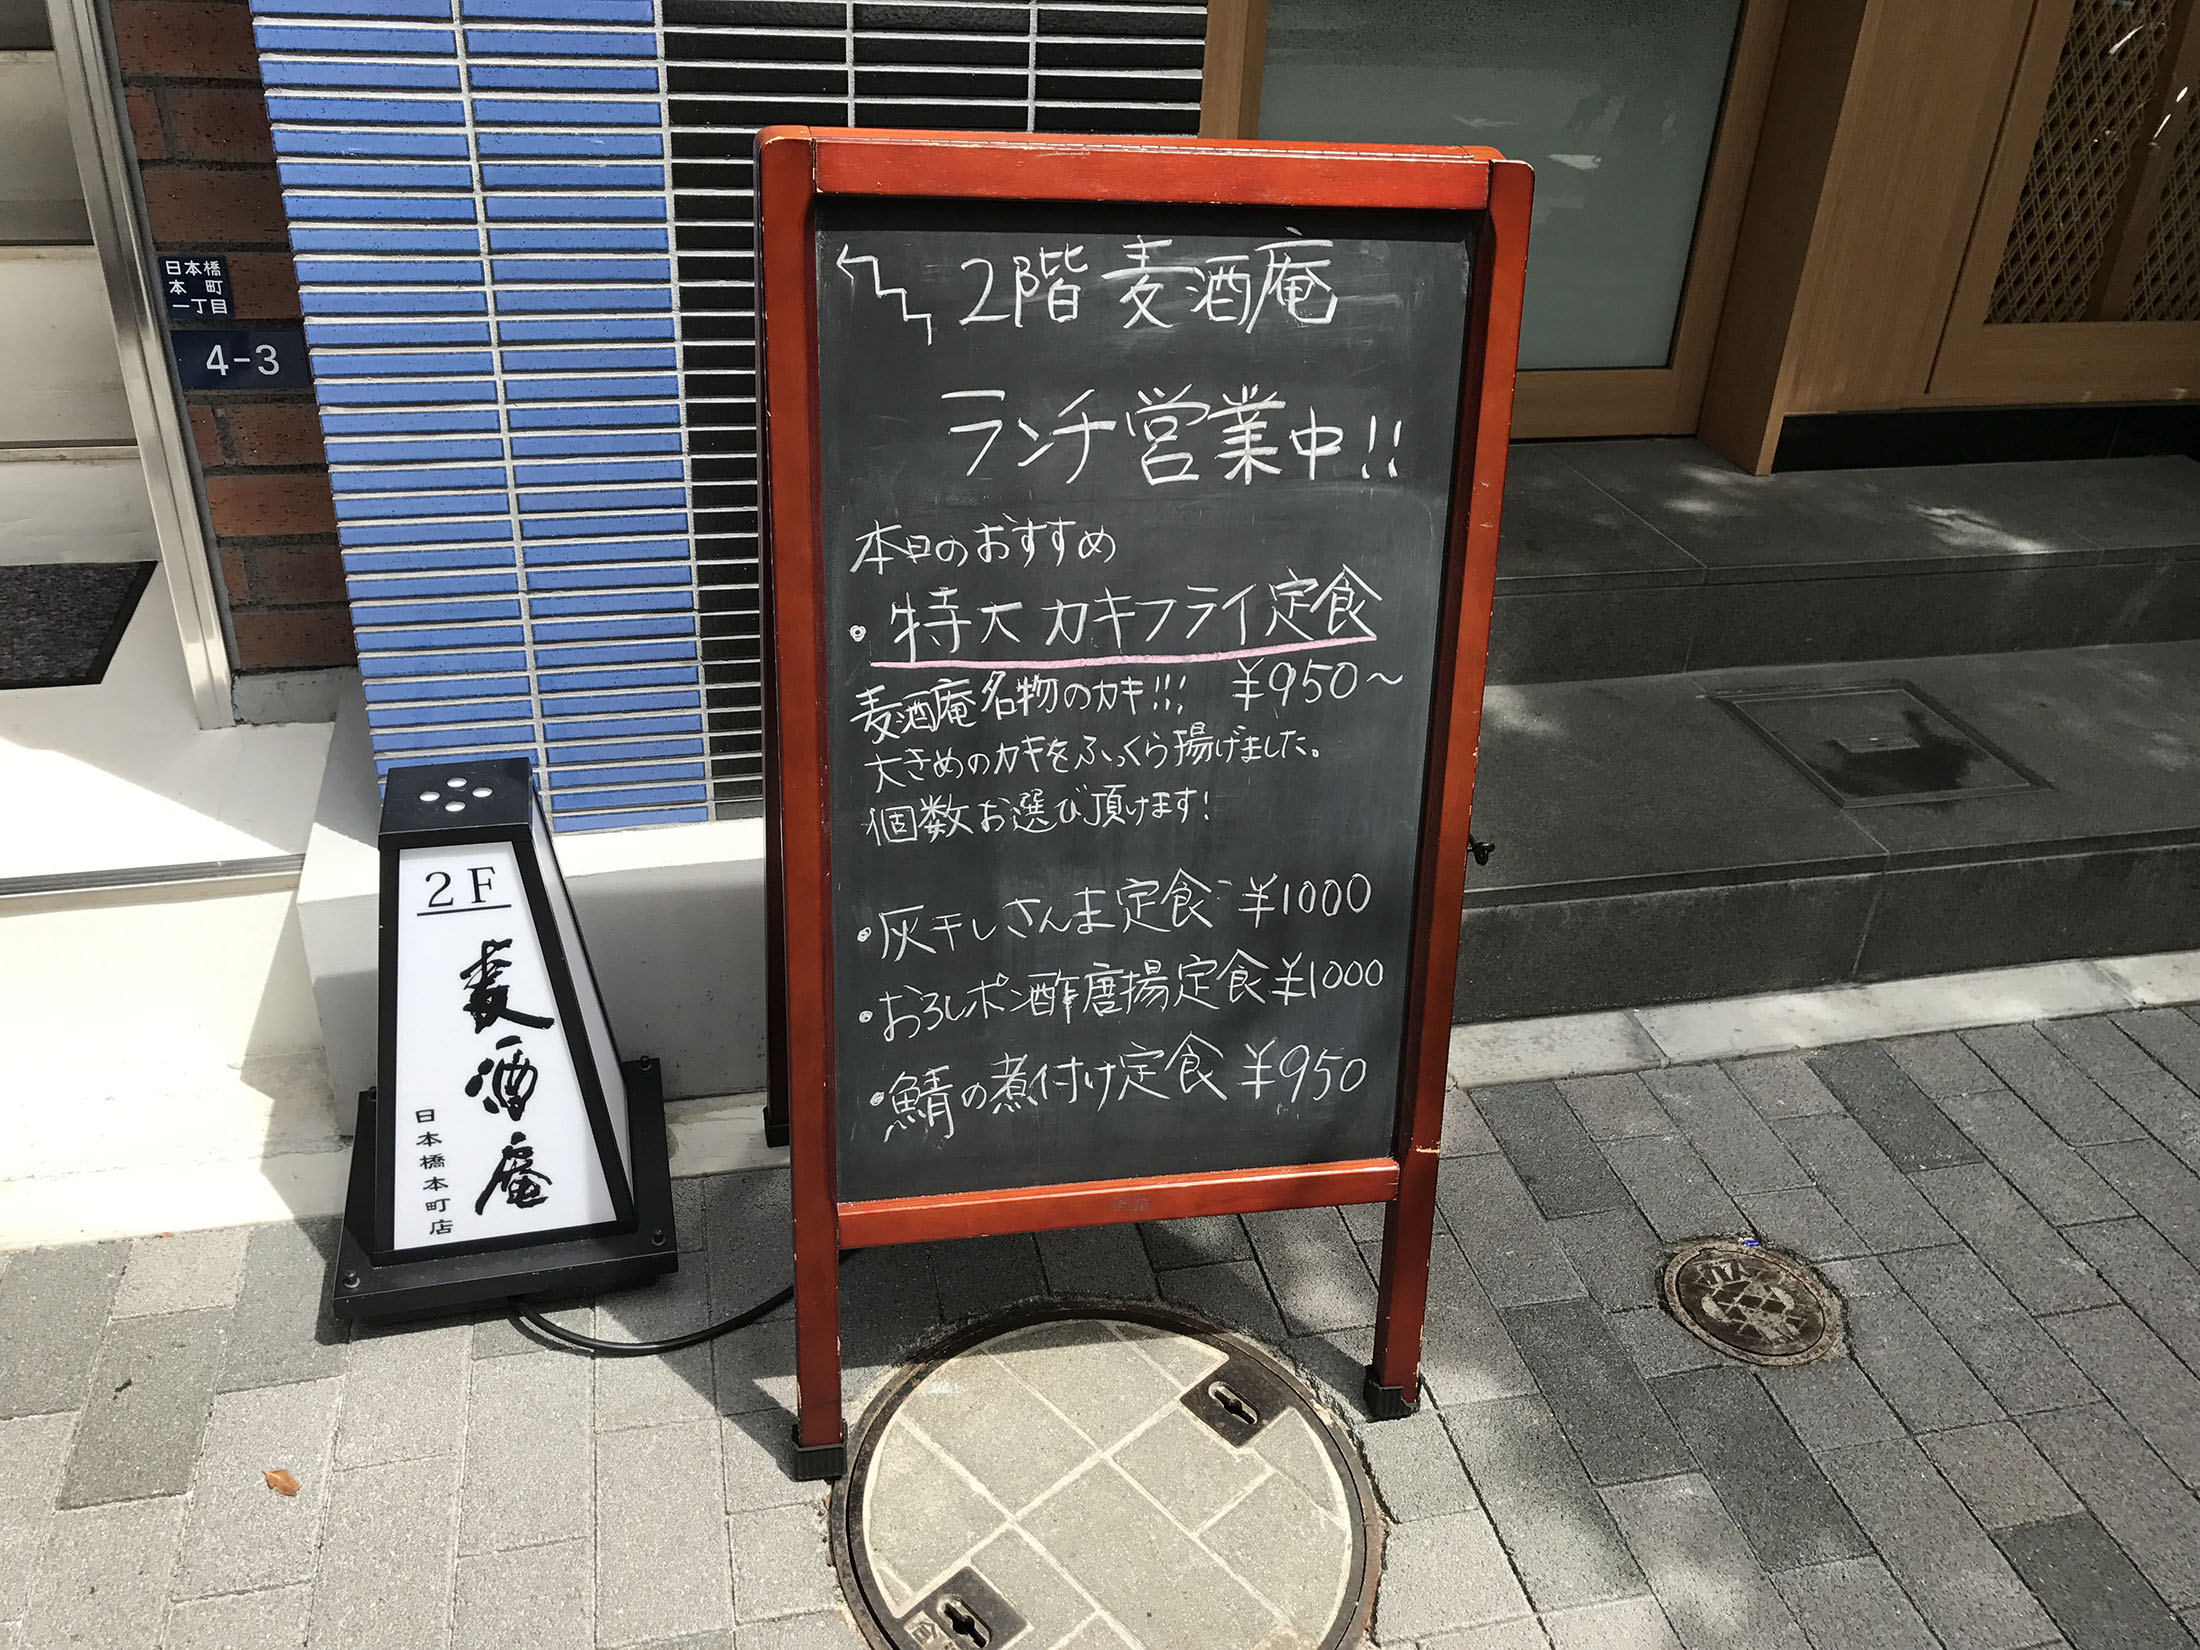 日本橋
本町
一丁目
4-3
2階 麦酒庵
ランチ営業中!!
本日のおすすめ
・特大カキフライ定食
¥950〜
麦酒庵名物のカキ!!!
大きめのカキをふっくら揚げました。
個数お選び頂けます!
・灰干しさんま定食 ¥1000
・おろしポン酢唐揚定食 ¥1000
・鯖の煮付け定食 ¥950
2F
麦酒庵
日本橋本町店